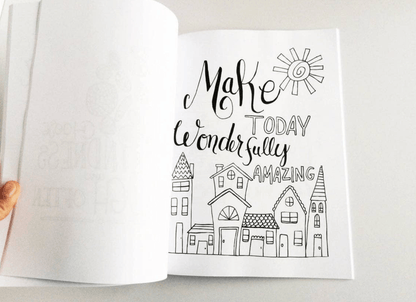 Make
TODAY
Wonderfully
AMAZING